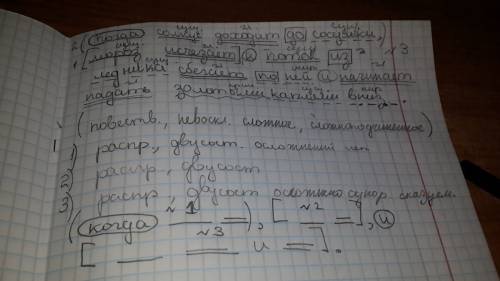 2 (Когда солнце доходит до сосульки,)
1 [мороз исчезает] и поток из № 3
ледника сбегает по ней и начинает
падать золотыми каплями вниз.
(повеств., невоскл. сложное, сложноподчиненное)
1) распр., двусост. осложнений нет
2) распр., двусост
3) распр, двусост осложнено однор. сказуем.
(когда №1 ), [ №2 ], и
№3
[ и ].